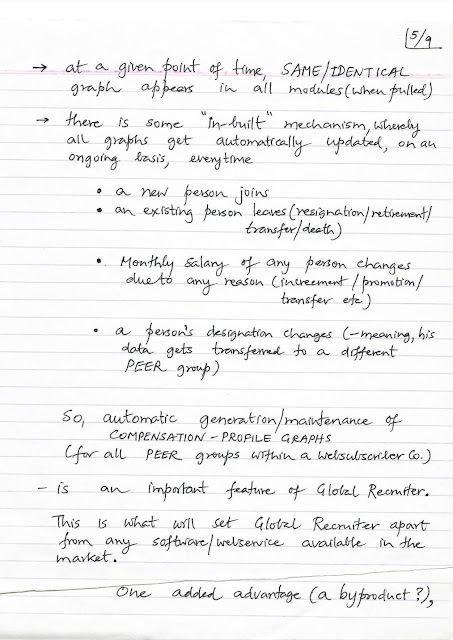 5/9
→ at a given point of time, SAME/IDENTICAL
graph appears in all modules (when pulled)
→ there is some "in-built" mechanism, whereby
all graphs get automatically updated, on an
ongoing basis, everytime
• a new person joins
• an existing person leaves (resignation/retirement/
transfer/death)
• Monthly Salary of any person changes
due to any reason (increement/promotion/
transfer etc)
• a person's designation changes (-meaning, his
data gets transferred to a different
PEER group)
So, automatic generation/maintenance of
COMPENSATION-PROFILE GRAPHS
(for all PEER groups within a Websubscriber Co.)
- is an important feature of Global Recruiter.
This is what will set Global Recruiter apart
from any software/webservice available in the
market.
One added advantage (a byproduct?),